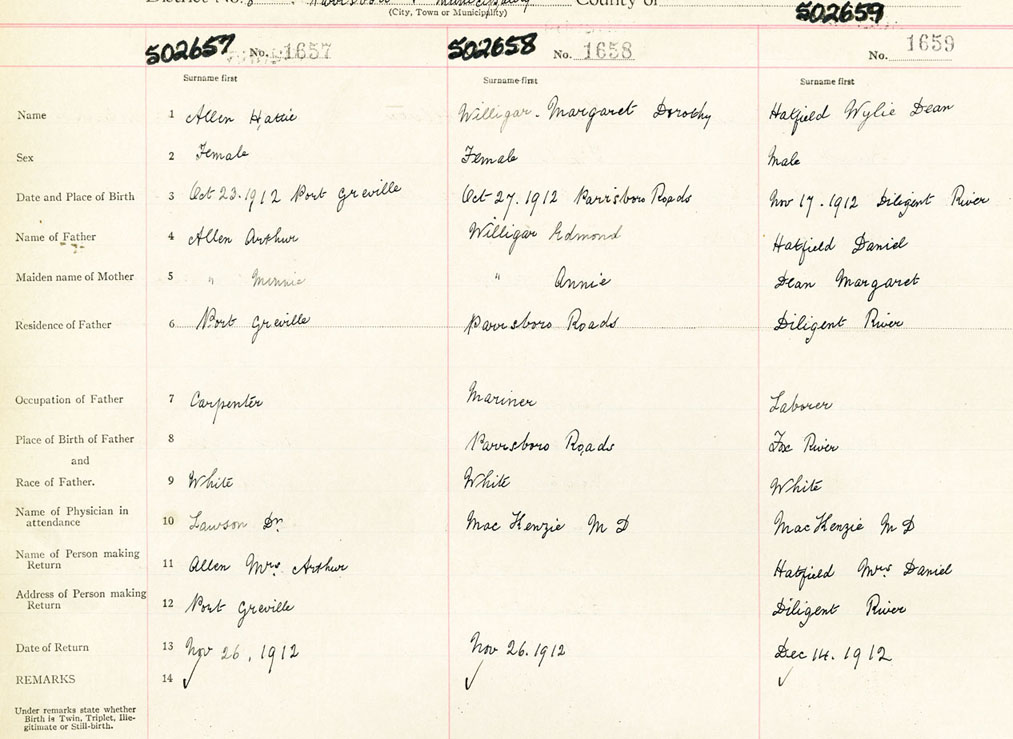 District No. 8 Parrsboro Municipality County of
(City, Town or Municipality)
502657 No. 1657 502658 No. 1658 502659 No. 1659
Surname first Surname first Surname first
Name 1 Allen Hattie Willigar. Margaret Dorothy Hatfield Wylie Dean
Sex 2 Female Female Male
Date and Place of Birth 3 Oct 23.1912 Port Greville Oct 27.1912 Parrsboro Roads Nov 17.1912 Diligent River
Name of Father 4 Allen Arthur Willigar Edmond Hatfield Daniel
Maiden name of Mother 5 " Minnie " Annie Dean Margaret
Residence of Father 6 Port Greville Parrsboro Roads Diligent River
Occupation of Father 7 Carpenter Mariner Laborer
Place of Birth of Father 8 Parrsboro Roads Fox River
and
Race of Father. 9 White White White
Name of Physician in
attendance 10 Lawson Dr. Mac Kenzie M D MacKenzie M D
Name of Person making
Return 11 Allen Mrs. Arthur Hatfield Mrs Daniel
Address of Person making
Return 12 Port Greville Diligent River
Date of Return 13 Nov 26, 1912 Nov 26.1912 Dec 14. 1912
REMARKS 14 ✓ ✓ ✓
Under remarks state whether
Birth is Twin, Triplet, Ille-
gitimate or Still-birth.